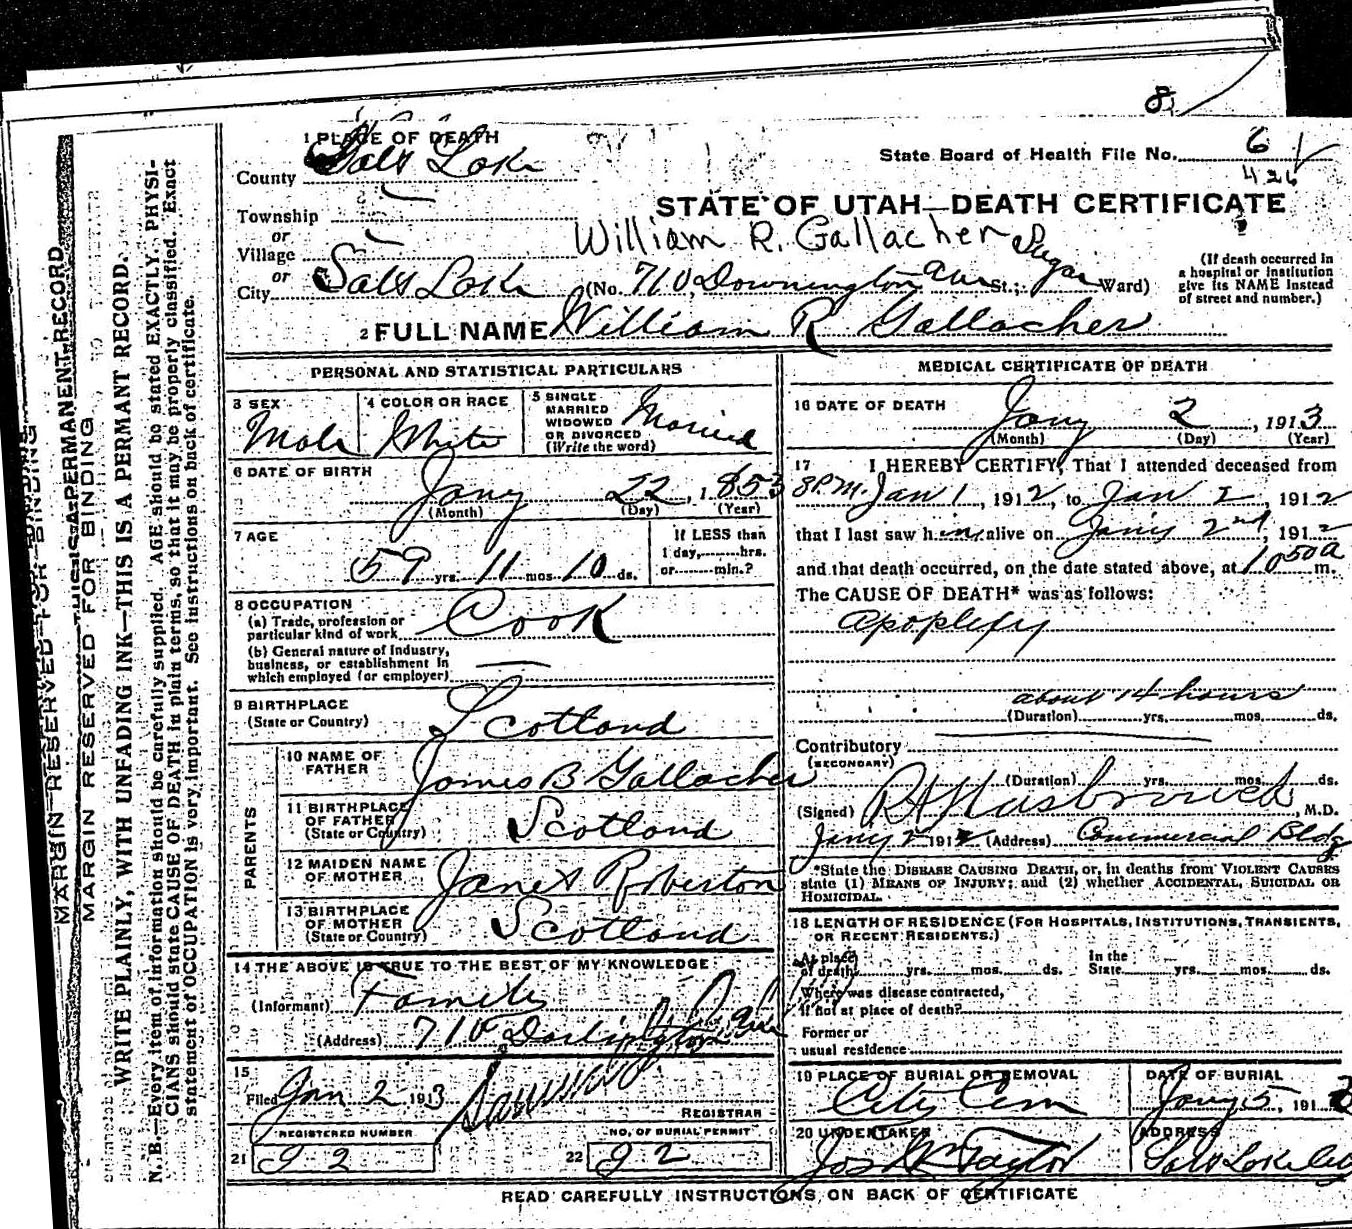 8
1 PLACE OF DEATH
State Board of Health File No. 6
426
County Salt Lake
STATE OF UTAH—DEATH CERTIFICATE
Township
or
William R. Gallacher
Village
or
City Salt Lake (No. 710, Downington Ave St.; Sugar Ward)
(If death occurred in
a hospital or institution
give its NAME instead
of street and number.)
2 FULL NAME William R Gallacher
PERSONAL AND STATISTICAL PARTICULARS
3 SEX
Male
4 COLOR OR RACE
White
5 SINGLE
MARRIED
WIDOWED
OR DIVORCED
(Write the word)
Married
6 DATE OF BIRTH
Jany 22, 1853
(Month) (Day) (Year)
7 AGE
59 yrs. 11 mos. 10 ds.
If LESS than
1 day, hrs.
or min.?
8 OCCUPATION
(a) Trade, profession or
particular kind of work Cook
(b) General nature of Industry,
business, or establishment in
which employed (or employer) —
9 BIRTHPLACE
(State or Country) Scotland
PARENTS
10 NAME OF
FATHER James B Gallacher
11 BIRTHPLACE
OF FATHER
(State or Country) Scotland
12 MAIDEN NAME
OF MOTHER Janet Roberton
13 BIRTHPLACE
OF MOTHER
(State or Country) Scotland
14 THE ABOVE IS TRUE TO THE BEST OF MY KNOWLEDGE
(Informant) Family
(Address) 710 Darlington Ave
15
Filed Jan 2 1913
REGISTRAR
REGISTERED NUMBER
21 92
NO. OF BURIAL PERMIT
22 92
MEDICAL CERTIFICATE OF DEATH
16 DATE OF DEATH
Jany 2, 1913
(Month) (Day) (Year)
17 I HEREBY CERTIFY, That I attended deceased from
8 P.M. Jan 1, 1912, to Jan 2, 1912
that I last saw him alive on Jany 2nd, 1912
and that death occurred, on the date stated above, at 10 50 a m.
The CAUSE OF DEATH* was as follows:
Apoplexy
about 14 hours
(Duration) yrs. mos. ds.
Contributory
(SECONDARY)
(Duration) yrs. mos. ds.
(Signed) M.D.
Jany 2 191 (Address) Commercial Bldg
*State the DISEASE CAUSING DEATH, or, in deaths from VIOLENT CAUSES
state (1) MEANS OF INJURY; and (2) whether ACCIDENTAL, SUICIDAL OR
HOMICIDAL.
18 LENGTH OF RESIDENCE (FOR HOSPITALS, INSTITUTIONS, TRANSIENTS,
OR RECENT RESIDENTS.)
At place
of death yrs. mos. ds.
In the
State yrs. mos. ds.
Where was disease contracted,
if not at place of death?
Former or
usual residence
19 PLACE OF BURIAL OR REMOVAL
City Cem
DATE OF BURIAL
Jany 5, 1913
20 UNDERTAKER
Jos Wm Taylor
ADDRESS
Salt Lake City
READ CAREFULLY INSTRUCTIONS ON BACK OF CERTIFICATE
MARGIN RESERVED FOR BINDING
WRITE PLAINLY, WITH UNFADING INK—THIS IS A PERMANT RECORD.
N. B.—Every item of information should be carefully supplied. AGE should be stated EXACTLY. PHYSI-
CIANS should state CAUSE OF DEATH in plain terms, so that it may be properly classified. Exact
statement of OCCUPATION is very important. See instructions on back of certificate.